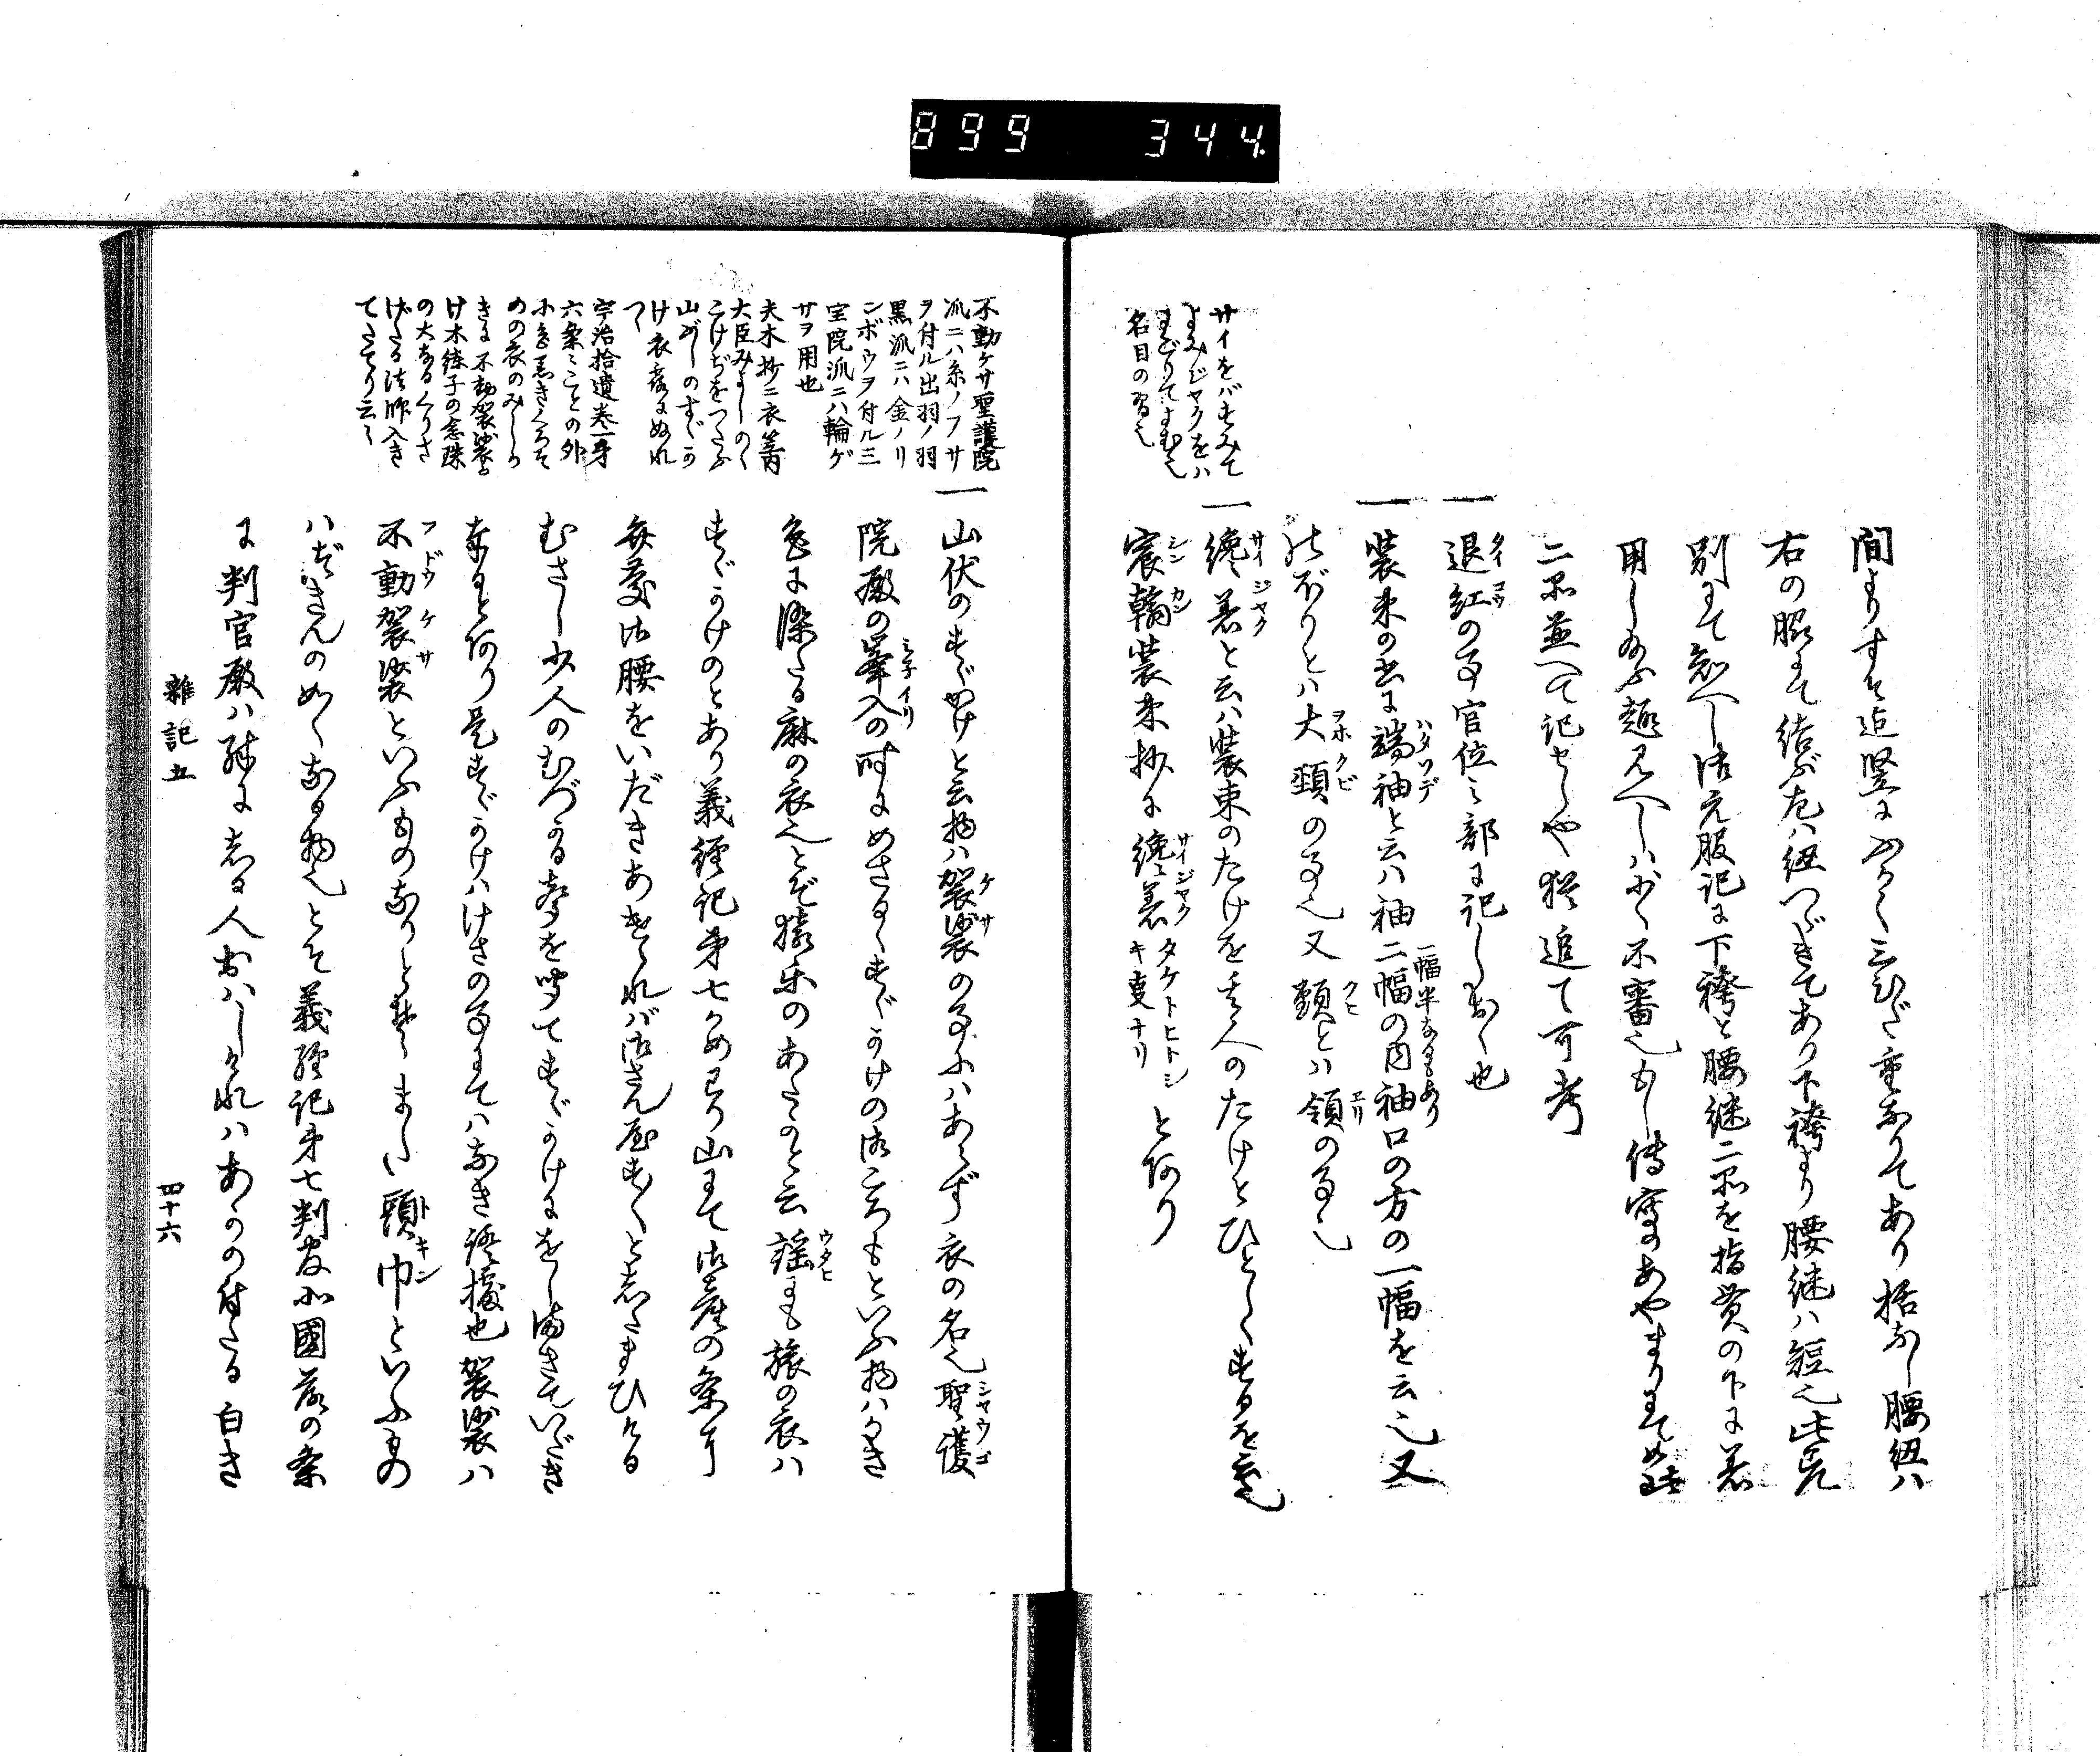 899 344.
間よりすそ迄竪に入りく三ひだ重なりてあり括なし腰紐ハ
右の脇にて結ぶ左ハ紐つゞきてあり下袴より腰継ハ短也
別にて知へし法元服記に下袴と腰継二品を指貫の下に着
用し給ふ趣見へしハ少く不審也もし傳寫のあやまりにて
二品並へて記せしや猶追て可考
一退紅の事官位之部に記し置く也
一装束の書に端袖と云ハ袖二幅の内袖口の方の一幅を云也又
一幅半なるもあり
のぼりとハ大頸の事也又頸とハ領の事也
一纔着と云ハ装束のたけを其人のたけとひとしくするを云也
宸翰装束抄に纔着タケトヒトシキ事ナリとあり
サイをバすみて
よみジヤクをハ
にごりてよむ也
名目の習也
一山伏のすゞかけと云物ハ袈裟の事にハあらず衣の名也聖護
院殿の峯入の時にめさるゝすゞかけの御ころもといふ物ハかき
色に染たる麻の衣也とぞ猿楽のあたかと云謡にも旅の衣ハ
すゞかけのとあり義經記第七かめわり山にて御産の条に
弁慶御腰をいだきあせられバ御さん屋すくと志たまひける
むさし少人のむづかる声を聞てすゞかけにをし満きていだき
奉るとあり是すゞかけハけさの事にてハなき證據也袈裟ハ
不動袈裟といふものなりとぞまた頭巾といふもの
ハづきんの如くなる物也とぞ義經記第七判官北國落の条
に判官殿ハ殊に志る人おハしけれハあかの付たる白き
不動ケサ聖護院
派ニハ糸ノフサ
ヲ付ル出羽ノ羽
黒派ニハ金ノリ
ンボウヲ付ル三
宝院派ニハ輪ゲ
サヲ用也
夫木抄ニ衣笠内
大臣みよしのゝ
こけぢをつたふ
山ぶしのすゞか
け衣露にぬれ
つゝ
宇治拾遺巻一第
六条ニことの外
に色黒きくろそ
めの衣のみじか
きに不動袈裟と
け木練子の念珠
の大なるくりさ
げたる法師入き
てたてり云々
雑記五
四十六